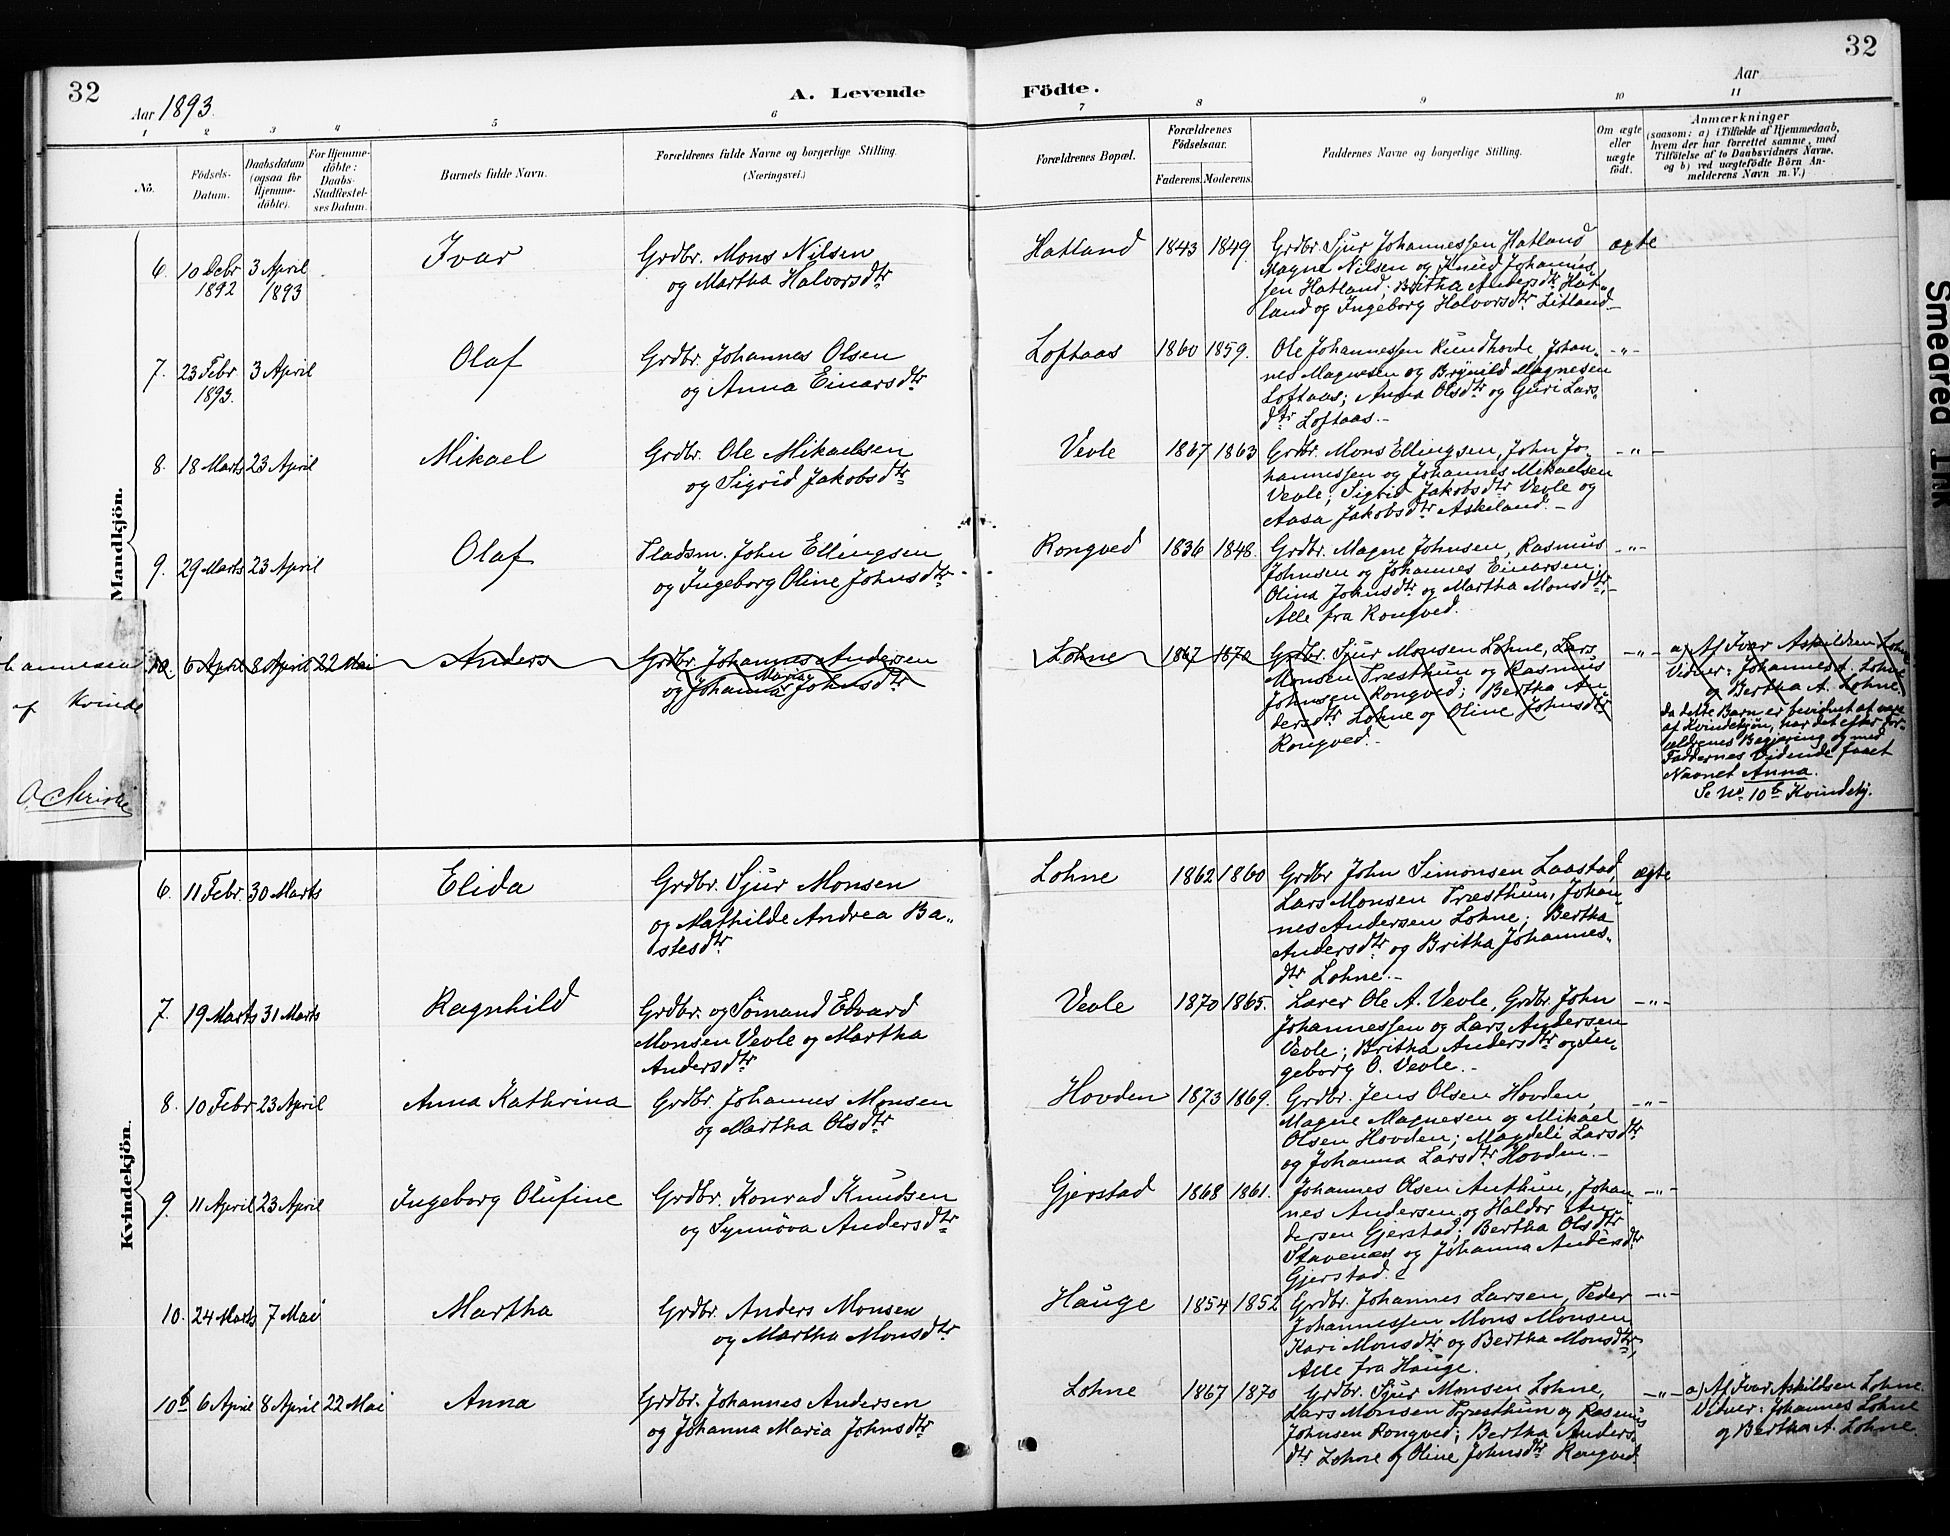 32
Aar 1893.
A. Levende
Födte.
32
Aar
1 2 3 4 5 6 7 8 9 10 11
No.
Födsels-
Datum.
Daabsdatum
(ogsaa for
Hjemme-
döbte).
For Hjemme-
döbte:
Daabs-
Stadfæstel-
ses Datum.
Barnets fulde Navn.
Forældrenes fulde Navne og borgerlige Stilling.
(Næringsvei.)
Forældrenes Bopæl.
Forældrenes
Födselsaar.
Faderens. Moderens.
Faddernes Navne og borgerlige Stilling.
Om ægte
eller
uægte
födt.
Anmærkninger
(saasom: a) i Tilfælde af Hjemmedaab,
hvem der har forrettet samme, med
Tilföielse af to Daabsvidners Navne,
og b) ved uægtefödte Börn An-
melderens Navn m. V.)
Mandkjön.
6. 10 Debr 1892 3 April 1893
Ivar
Grdbr. Mons Nilsen
og Martha Halvorsdtr
Hatland 1843 1849.
Grdbr. Sjur Johannessen Hatland,
Magne Nilsen og Knud Johannes
sen Hatland; Britha Andersdtr Hat-
land og Ingeborg Halvorsdtr Litland
ægte
7. 23 Febr 1893. 3 April
Olaf
Grdbr. Johannes Olsen
og Anna Einarsdtr
Loftaas 1860 1859.
Ole Johannessen Rundhovde, Johan-
nes Magnesen og Brynild Magnesen
Loftaas; Anna Olsdtr og Guri Lars-
dtr Loftaas.-
-"-
8. 18 Marts 23 April
Mikael
Grdbr. Ole Mikaelsen
og Sigrid Jakobsdtr
Vevle 1867 1863
Grdbr. Mons Ellingsen, John Jo-
hannessen og Johannes Mikaelsen
Vevle; Sigrid Jakobsdtr Vevle og
Aasa Jakobsdtr Askeland.-
-"-
9. 29 Marts 23 April
Olaf
Pladsm. John Ellingsen
og Ingeborg Oline Johnsdtr
Rongved 1836 1848.
Grdbr. Magne Johnsen, Rasmus
Johnsen og Johannes Einarsen;
Olina Johnsdtr og Martha Monsdtr,
Alle fra Rongved.
-"-
af Kvinde
O. Christie
10a. 6 April 8 April 22 Mai
Anders
Grdbr. Johannes Andersen
og Johanna Maria Johnsdtr
Lohne 1867 1870
Grdbr. Sjur Monsen Lohne, Lars
Monsen Træsthun og Rasmus
Johnsen Rongved; Bertha An-
dersdtr Lohne og Oline Johnsdtr
Rongved.-
-"-
a) Af Ivar Askildsen Lohne
Vidner: Johannes A. Lohne
og Bertha A. Lohne
Da dette Barn er bevidnet at være
af Kvindekjøn, har det efter For-
ældrenes Begjæring og med
Faddernes Vidende faaet
Navnet Anna.
Se No. 10b Kvindekj.
Kvindekjön.
6. 11 Febr. 30 Marts
Elida
Grdbr. Sjur Monsen
og Mathilde Andrea Ba-
stesdtr
Lohne 1862 1860
Grdbr John Simonsen Laastad,
Lars Monsen Træsthun, Johan-
nes Andersen Lohne; Bertha
Andersdtr og Britha Johannes-
dtr Lohne.-
ægte
7. 19 Marts 31 Marts
Ragnhild
Grdbr. og Sömand Edvard
Monsen Vevle og Martha
Andersdtr
Vevle 1870 1865.
Lærer Ole A. Vevle, Grdbr. John
Johannessen og Lars Andersen
Vevle; Britha Andersdtr og In-
geborg O. Vevle.-
-"-
8. 10 Febr 23 April
Anna Kathrina
Grdbr. Johannes Monsen
og Martha Olsdtr
Hovden 1873 1869.
Grdbr. Jens Olsen Hovden,
Magne Magnesen og Mikael
Olsen Hovden; Magdeli Larsdtr
og Johanna Larsdtr Hovden.-
-"-
9. 11 April 23 April
Ingeborg Olufine
Grdbr. Konrad Knudsen
og Synnöva Andersdtr
Gjerstad 1868 1861.
Johannes Olsen Authun, Johan-
nes Andersen og Haldor An-
dersen Gjerstad; Bertha Olsdtr
Stavenæs og Johanna Andersdtr
Gjerstad.
-"-
10. 24 Marts 7 Mai
Martha
Grdbr. Anders Monsen
og Martha Monsdtr
Hauge 1854 1852
Grdbr. Johannes Larsen, Peder
Johannessen Mons Monsen
Kari Monsdtr og Bertha Monsdtr,
Alle fra Hauge.
-"-
10b 6 April 8 April 22 Mai
Anna
Grdbr. Johannes Andersen
og Johanna Maria Johnsdtr
Lohne 1867 1870
Grdbr. Sjur Monsen Lohne,
Lars Monsen Træsthun og Rasmus
Johnsen Rongved; Bertha Anders-
dtr Lohne og Oline Johnsdtr Rongved.
-"-
a) Af Ivar Askildsen Lohne.
Vidner: Johannes Lohne
og Bertha A. Lohne
Smeared Ink